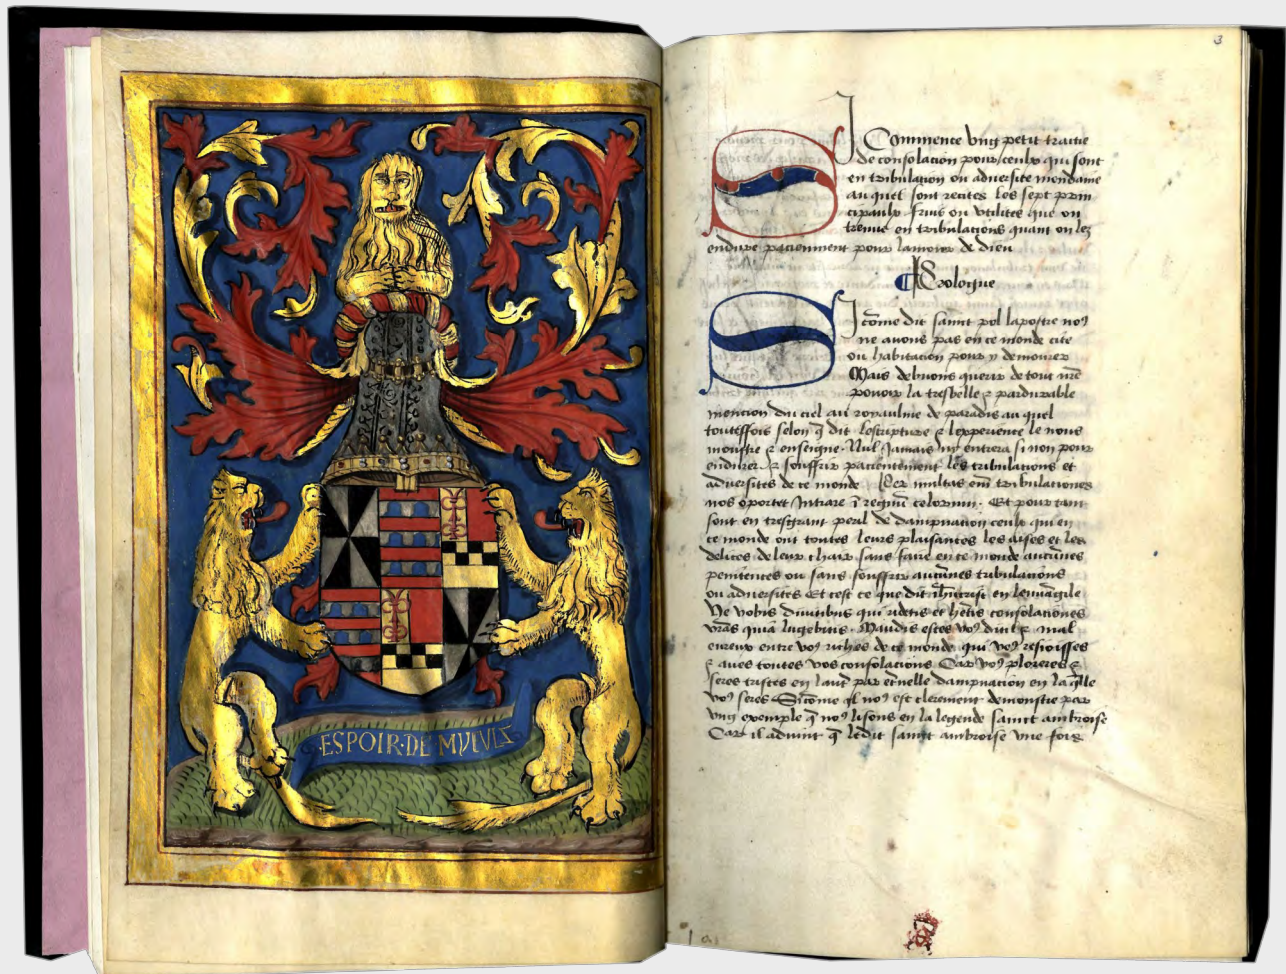 ESPOIR·DE
3
Si Commence vng petit traitie
de consolacion pour ceulx qui sont
en tribulacion ou aduersite mondaine
au quel sont recites les sept prin
cipaulx fruis ou vtilites que on
treuue en tribulacions quant on les
endure paciemment pour lamour de dieu
Prologue
Si cõme dit saint pol lapostre no9
ne auons pas en ce monde cite
ou habitacion pour y demourer
Mais deuons querir de tout nr̃e
pouoir la tresbelle & pardurable
mencion du ciel au royaulme de paradis au quel
touteffois selon q̃ dit lescripture & lexperience le nous
monstre & enseigne. Nul Jamais ny entrera si non pour
endurer & souffrir pacientement les tribulacions et
aduersites de ce monde Per multas em̃ tribulationes
nos oportet Intrare ĩ regnũ celorum. Et pour tant
sont en tresgrant peril de dampnacion ceulx qui en
ce monde ont toutes leurs plaisances les aises et les
delices de leur chair sans faire en ce monde aucũnes
penitences ou sans souffrir aucũnes tribulacions
ou aduersites Et cest ce que dit ih̃ucrist en leuuãgile
Ve vobis diuitibus qui ridetis et h̃etis consolaciones
vr̃as quia lugebitis. Maudis estes vo9 dit il & mal
eureux entre vo9 riches de ce monde qui vo9 resioisses
& aues toutes vos consolacions Car vo9 ploreres &
seres tristes en laut̃ par et̃nelle dampnacion en laq̃lle
vo9 seres Sicõme il no9 est clerement demonstre par
vng exemple q̃ no9 lisons en la legende saint ambroise
Car il aduint q̃ ledit saint ambroise vne fois